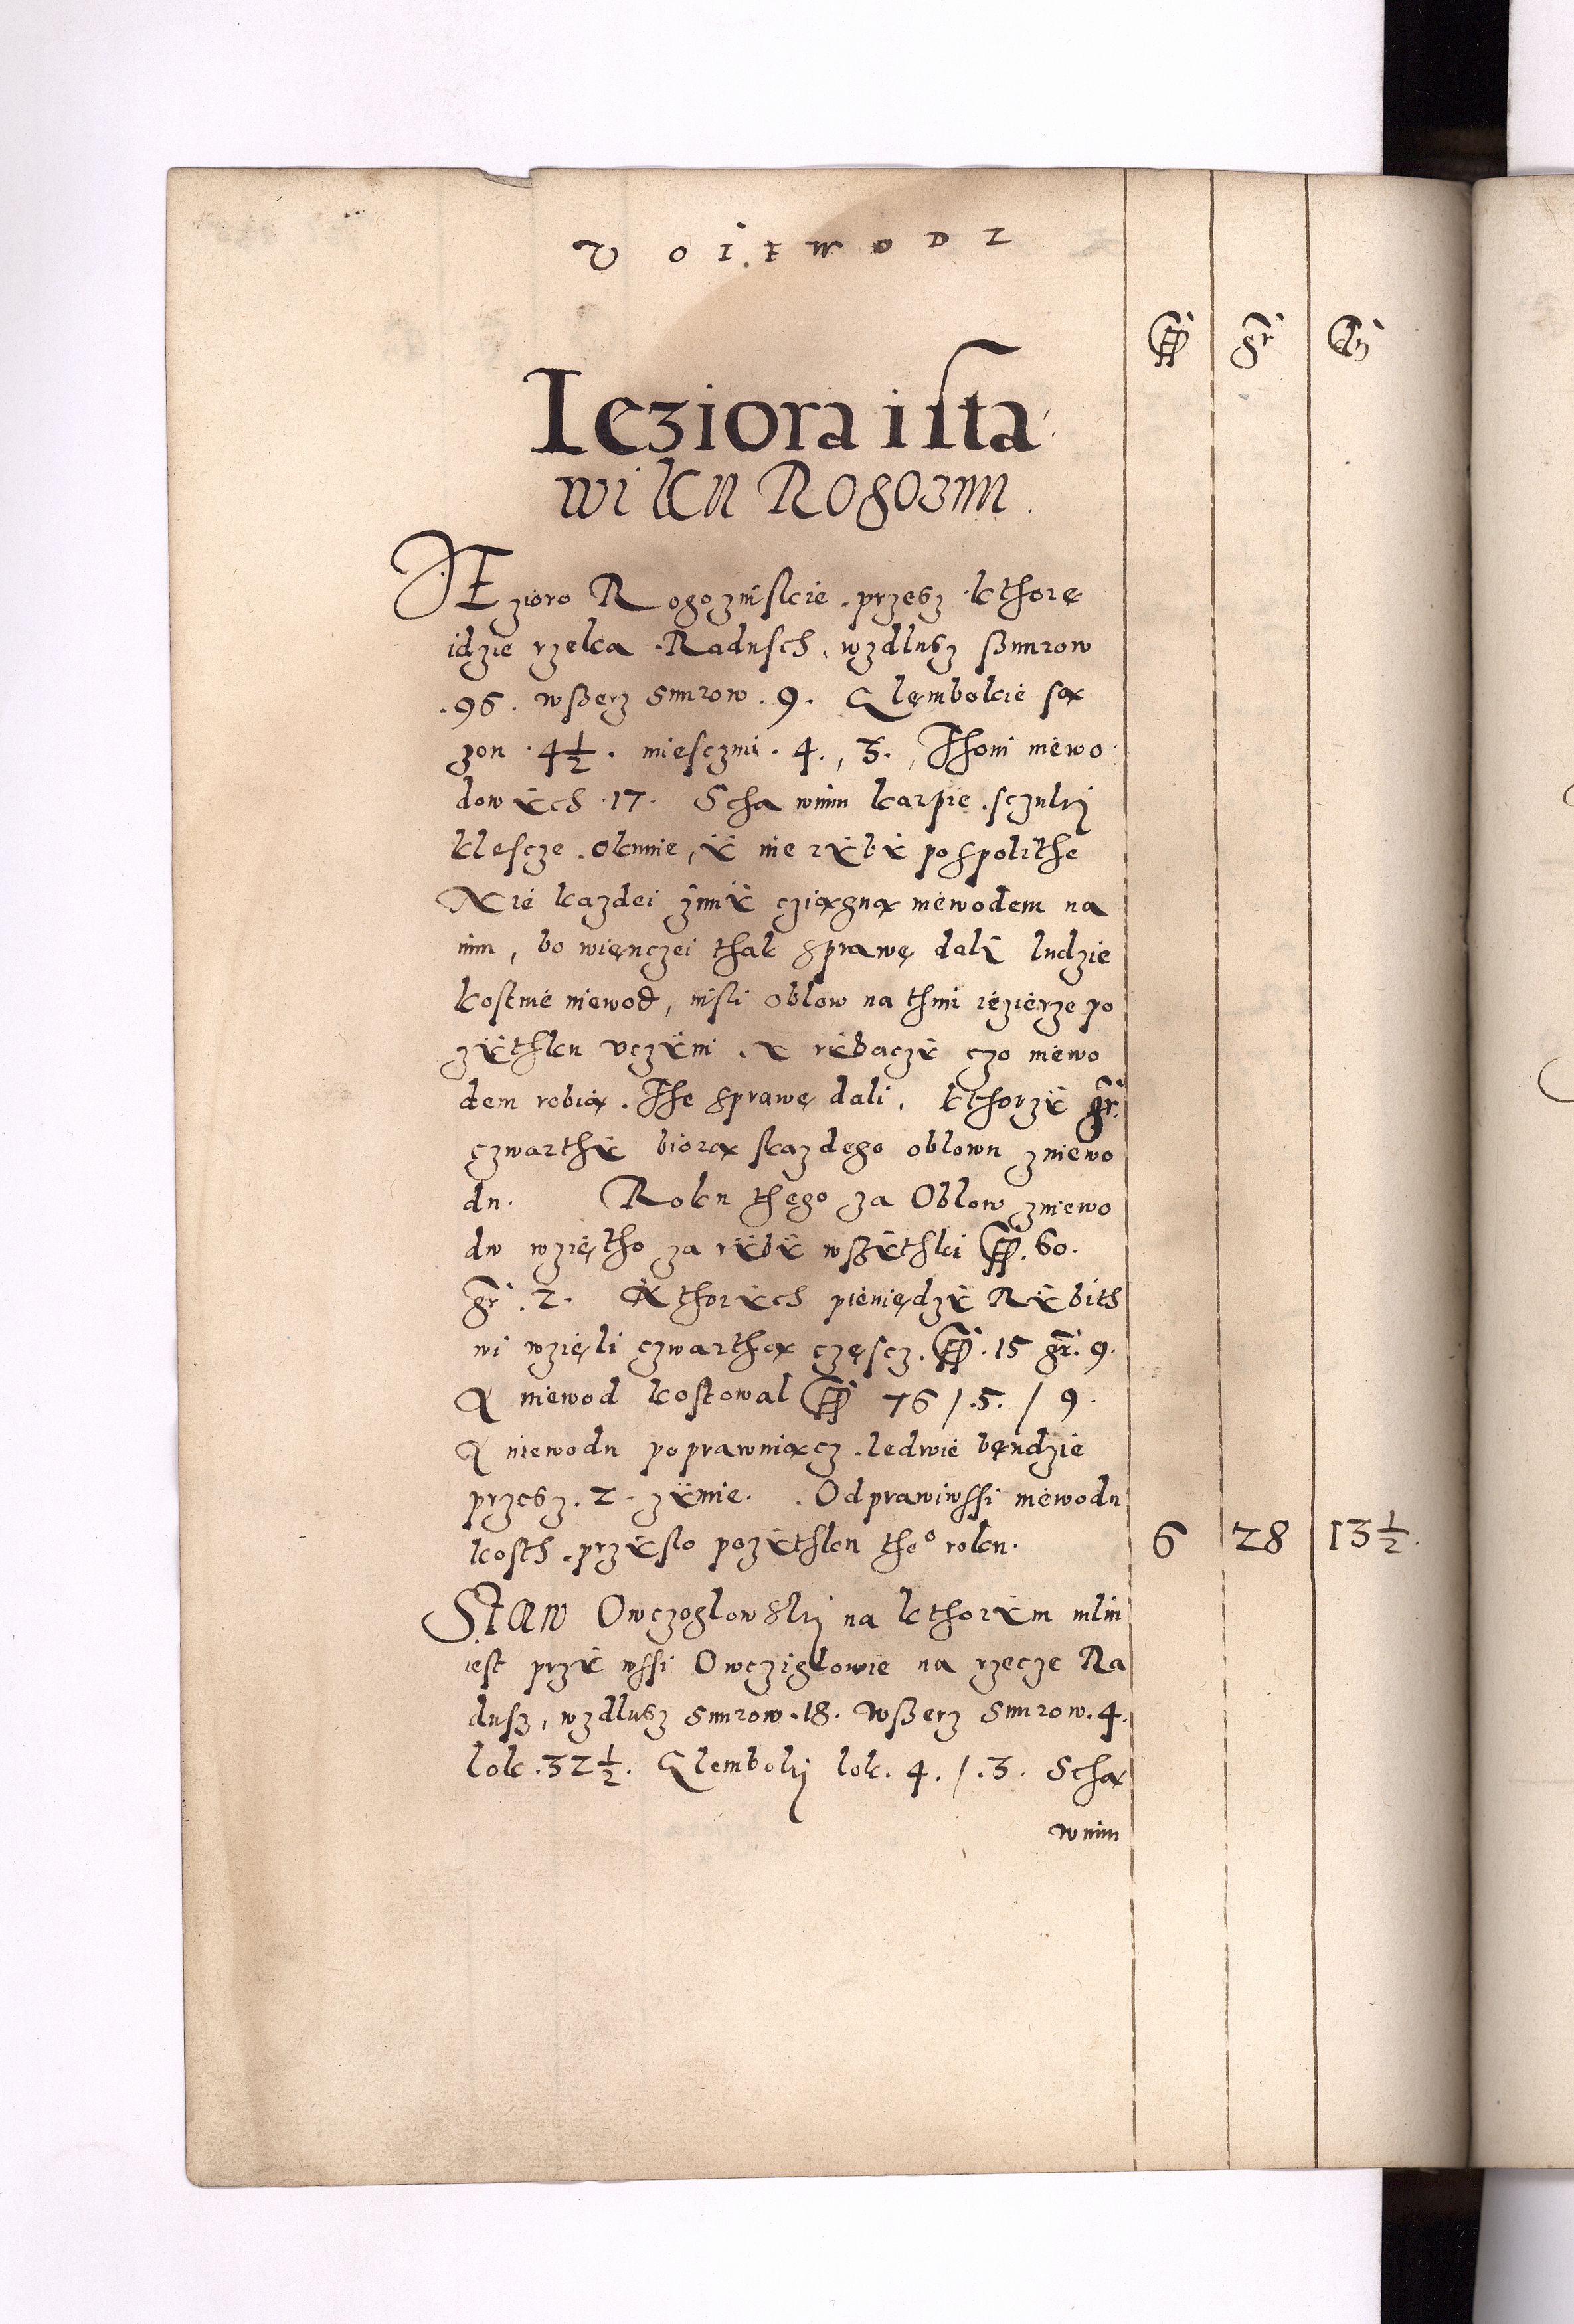 V o i e w o d z
fl gr d
Ieziora i sta
wi ku Rogoznu
Iezioro Rogozniskie . przesz kthore
idzie rzeka Radusch, wzdlusz sznurow
.96. wszerz snurow .9. Glęmbokie sąx
zon .4½. miesczmi .4., 3., Thoni niewo
dowych .17. Scha wnim karpie . sczuki
klescze . okunie, ÿ ine rÿbÿ pospolithe
Nie kazdei zimÿ cziągną niewodem na
nim, bo więnczei thak sprawę dalÿ ludzie
kostuie niewod, nisli oblow na thim iezierze po
zÿthku vczÿni . ÿ rÿbaczÿ czo niewo
dem robią . The sprawę dali, kthorzÿ gr.
czwarthÿ biorą skazdego oblowu zniewo
du. Roku thego za Oblow zniewo
du wziętho za rÿbÿ wszÿthki fl. 60.
gr .2. Z kthorÿch pieniędzÿ Rÿbith
wi wzięli czwarthą częscz . fl .15 gr. 9.
A niewod kostowal fl 76 / .5. / 9.
A niewodu poprawuiącz . ledwie będzie
przesz . 2 . zÿmie . . Odprawiwssi niewodu
kosth . przÿslo pozÿthku the° roku. 6 28 13½.
Staw Owczoglowski na kthorÿm mlin
iest przÿ wssi Owcziglowie na rzecze Ra
dusz, wzdlusz snurow .18. wszerz snurow .4.
lok .32½. Glemboki lok. 4. / .3. Scha
wnim